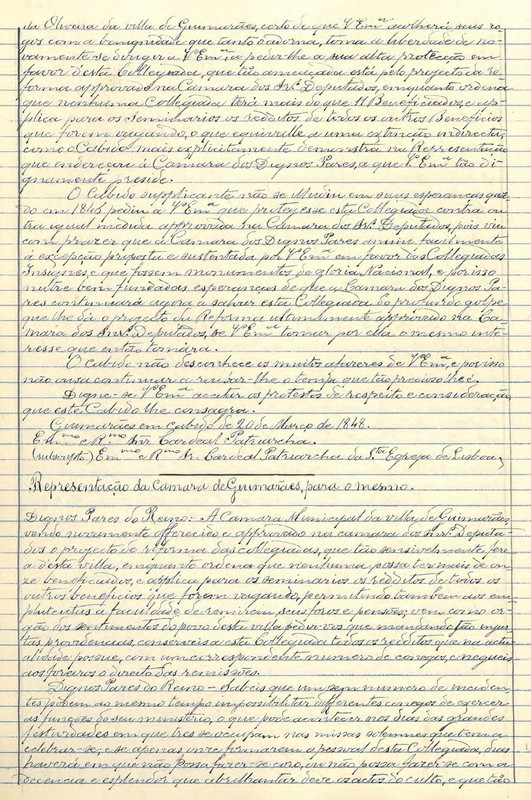 da Oliveira da villa de Guimarães, certo de que V. Em.ª acolherá seus ro-
gos com a benignidade que tanto o adorna, toma a liberdade de no-
vamente se dirigir a V. Em.ª, a pedir-lhe a sua alta protecção em
favor d'esta Collegiada, que tão ameaçada está pelo projecto da re-
forma approvado na Camara dos Snr.s Deputados, emquanto ordena
que nenhuma Collegiada terá mais do que 11 Beneficiados, e ap-
plica para os Seminarios os redditos de todos os outros Beneficios
que forem vagando, o que equivalle a uma extincção indirecta,
como o Cabido mais explicitamente demonstra na Representação
que endereçou á Camara dos Dignos Pares, a que V. Em.ª tão di-
gnamente preside.
O Cabido supplicante não se illudiu em suas esperanças quan-
do em 1845 pediu a V. Em.ª que protegesse esta Collegiada contra ou-
tra igual medida approvada na Camara dos Snr.s Deputados, pois viu
com prazer que a Camara dos Dignos Pares annuiu facilmente
á excepção proposta e sustentada por V. Em.ª em favor das Collegiadas
Insignes, e que fossem monumentos de gloria Nacional, e por isso
nutre bem fundadas esperanças de que a Camara dos Dignos Pa-
res continuará agora a salvar esta Collegiada do profundo golpe
que lhe dá o projecto da Reforma ultimamente approvado na Ca-
mara dos Snr.s Deputados, se V. Em.ª tomar por ella o mesmo inte-
resse que então tomára.
O Cabido não desconhece os muitos afazeres de V. Em.ª, e por isso
não ousa continuar a roubar-lhe o tempo que tão precioso lhe é.
Digne-se V. Em.ª aceitar os protestos de respeito e consideração
que este Cabido lhe consagra.
Guimarães em Cabido de 20 de Março de 1848.
Em.mo e R.mo Snr Cardeal Patriarcha.
(subscripto) Em.mo e R.mo Sr. Cardeal Patriarcha da S.ta Egreja de Lisboa,
Representação da Camara de Guimarães, para o mesmo.
Dignos Pares do Reino: A Camara Municipal da villa de Guimarães,
vendo novamente offerecido e approvado na camara dos Snr.s Deputa-
dos o projecto de reforma das Collegiadas, que tão sensivelmente fere
a d'esta villa, emquanto ordena que nenhuma possa ter mais de on-
ze beneficiados, e applica para os seminarios os redditos de todos os
outros beneficios que forem vagando, permittindo tambem aos em-
phiteutas a faculdade de remirem seus foros e pensões; vem como or-
gão dos sentimentos do povo desta villa pedir vos que mandando tão injus-
tas providencias, conserveis a esta Collegiada todos os redditos que na actu-
alidade possue, com um correspondente numero de conegos, e negueis
aos foreiros o direito das remissões.
Dignos Pares do Reino - Sabeis que um sem numero de inciden-
tes podem ao mesmo tempo impossibilitar differentes conegos de exercer
as funcções do seu ministerio, o que pode acontecer nos dias das grandes
festividades em que tres se occupam nas missas solemnes que tem a
celebrar-se; e se apenas onze formarem o pessoal desta Collegiada, dias
haverá em que não possa fazer-se coro, ou não possa fazer-se com a
decencia e esplendor que abrilhantar deve os actos do culto, e que tão